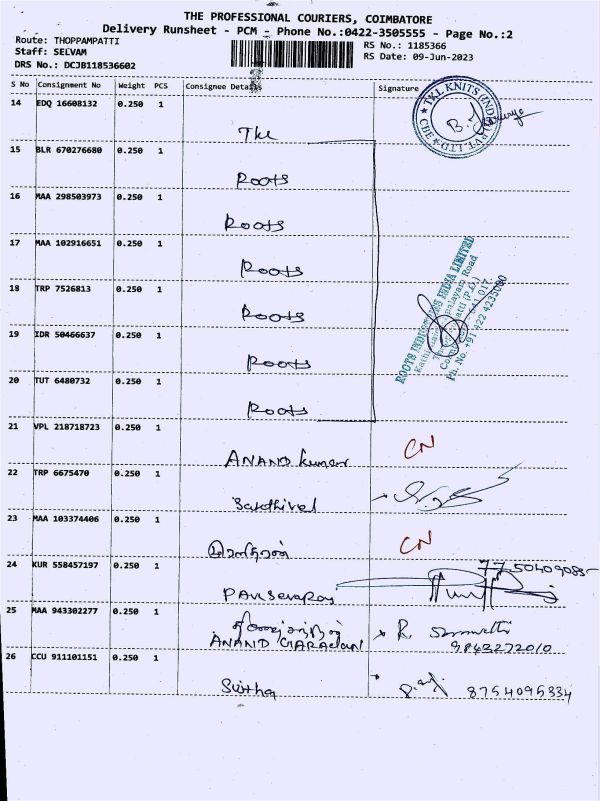 THE PROFESSIONAL COURIERS, COIMBATORE
Delivery Runsheet - PCM - Phone No.:0422-3505555 - Page No.:2
Route: THOPPAMPATTI
RS No.: 1185366
Staff: SELVAM
RS Date: 09-Jun-2023
DRS No.: DCJB118536602
S No Consignment No Weight PCS Consignee Details Signature
14 EDQ 16608132 0.250 1
TKL KNITS (INDIA) PVT. LTD. CBE
The
15 BLR 670276680 0.250 1
Roots
16 MAA 298503973 0.250 1
Roots
17 MAA 102916651 0.250 1
Roots
18 TRP 7526813 0.250 1
Roots
ROOTS INDUSTRIES INDIA LIMITED
Palayam Road
641 017.
Ph. No. +91 422 4235000
19 IDR 50466637 0.250 1
Roots
20 TUT 6480732 0.250 1
Roots
21 VPL 218718723 0.250 1
ANAND kumar CN
22 TRP 6675470 0.250 1
Sakthivel
23 MAA 103374406 0.250 1
CN
24 KUR 558457197 0.250 1
25 MAA 943302277 0.250 1
ANAND R.
9843272010
26 CCU 911101151 0.250 1
8754095334